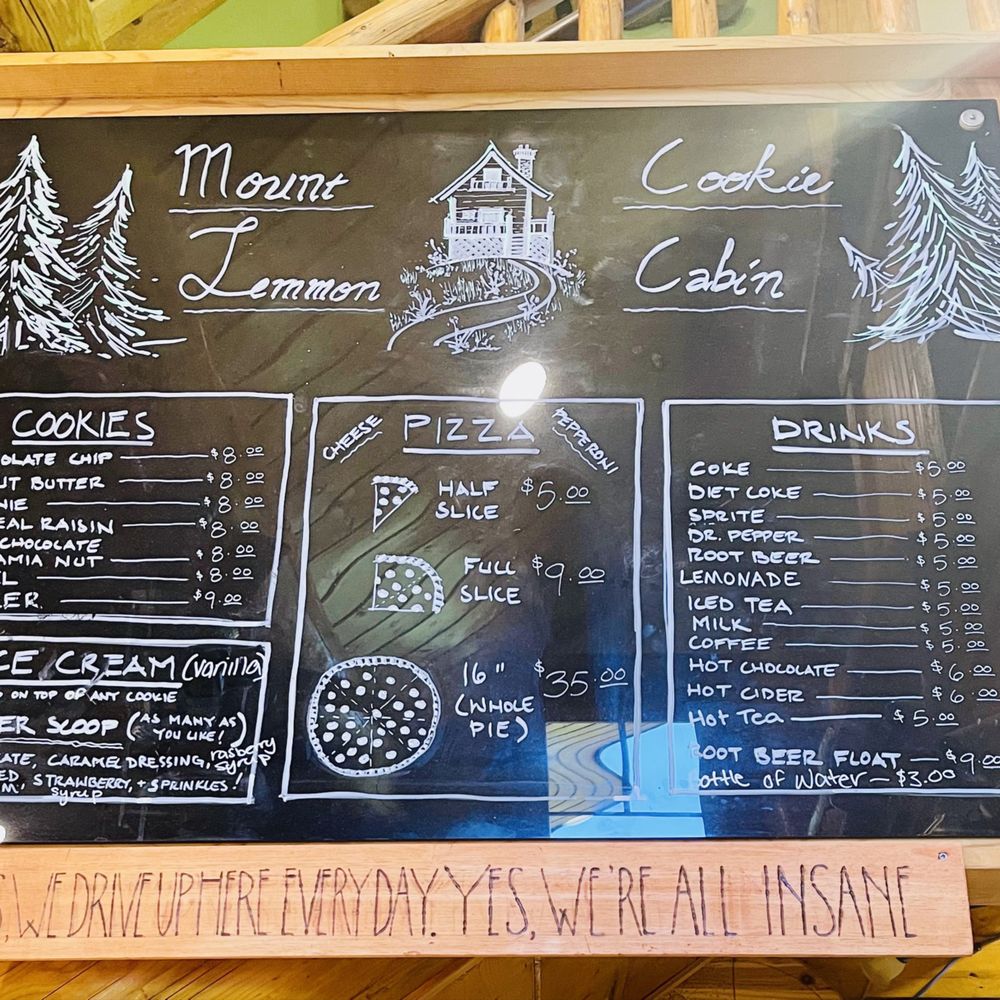 Mount
Lemmon
Cookie
Cabin
COOKIES
OLATE CHIP $8.00
UT BUTTER $8.00
NIE $8.00
EAL RAISIN $8.00
CHOCOLATE
AMIA NUT $8.00
L $8.00
ER $9.00
CE CREAM (vanilla)
ON TOP OF ANY COOKIE
ER SCOOP (AS MANY AS
YOU LIKE!)
ATE, CARAMEL DRESSING, rasberry
syrup
ED
M, STRAWBERRY, + SPRINKLES!
syrup
CHEESE
PIZZA
PEPPERONI
HALF
SLICE $5.00
FULL
SLICE $9.00
16"
(WHOLE
PIE) $35.00
DRINKS
COKE $5.00
DIET COKE $5.00
SPRITE $5.00
DR. PEPPER $5.00
ROOT BEER $5.00
LEMONADE $5.00
ICED TEA $5.00
MILK $5.00
COFFEE $5.00
HOT CHOCOLATE $6.00
HOT CIDER $6.00
Hot Tea $5.00
ROOT BEER FLOAT — $9.00
Bottle of Water — $3.00
S, WE DRIVE UP HERE EVERYDAY. YES, WE'RE ALL INSANE